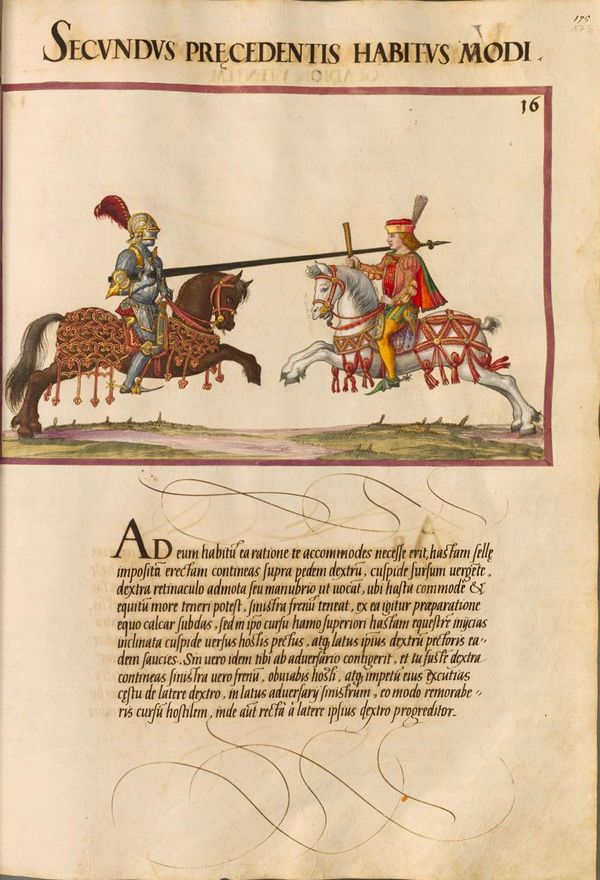 175
176
SECVNDVS PRĘCEDENTIS HABITVS MODI.
16
AD eum habitū ea ratione te accommodes necesse erit, hastam sellę
impositā erectam contineas supra pedem dextrū, cuspide sursum vergēte,
dextra retinaculo admota seu manubrio ut vocāt, ubi hasta commodē &
equitū more teneri potest, sinistra frenū teneat, ex ea igitur præparatione
equo calcar subdas, sed in ipo cursu hamo superiori hastam equestrē inijcias
inclinata cuspide versus hostis pectus, atq; latus ipius dextrū pectoris ea-
dem saucies. Sin vero idem tibi ab adversario contigerit, et tu fustē dextra
contineas sinistra vero frenū, obviabis hosti, atq; impetū eius excutias
cęstu de latere dextro, in latus adversarij sinistrum, eo modo remorabe-
ris cursū hostilem, inde aūt rectā à latere ipsius dextro progreditor.